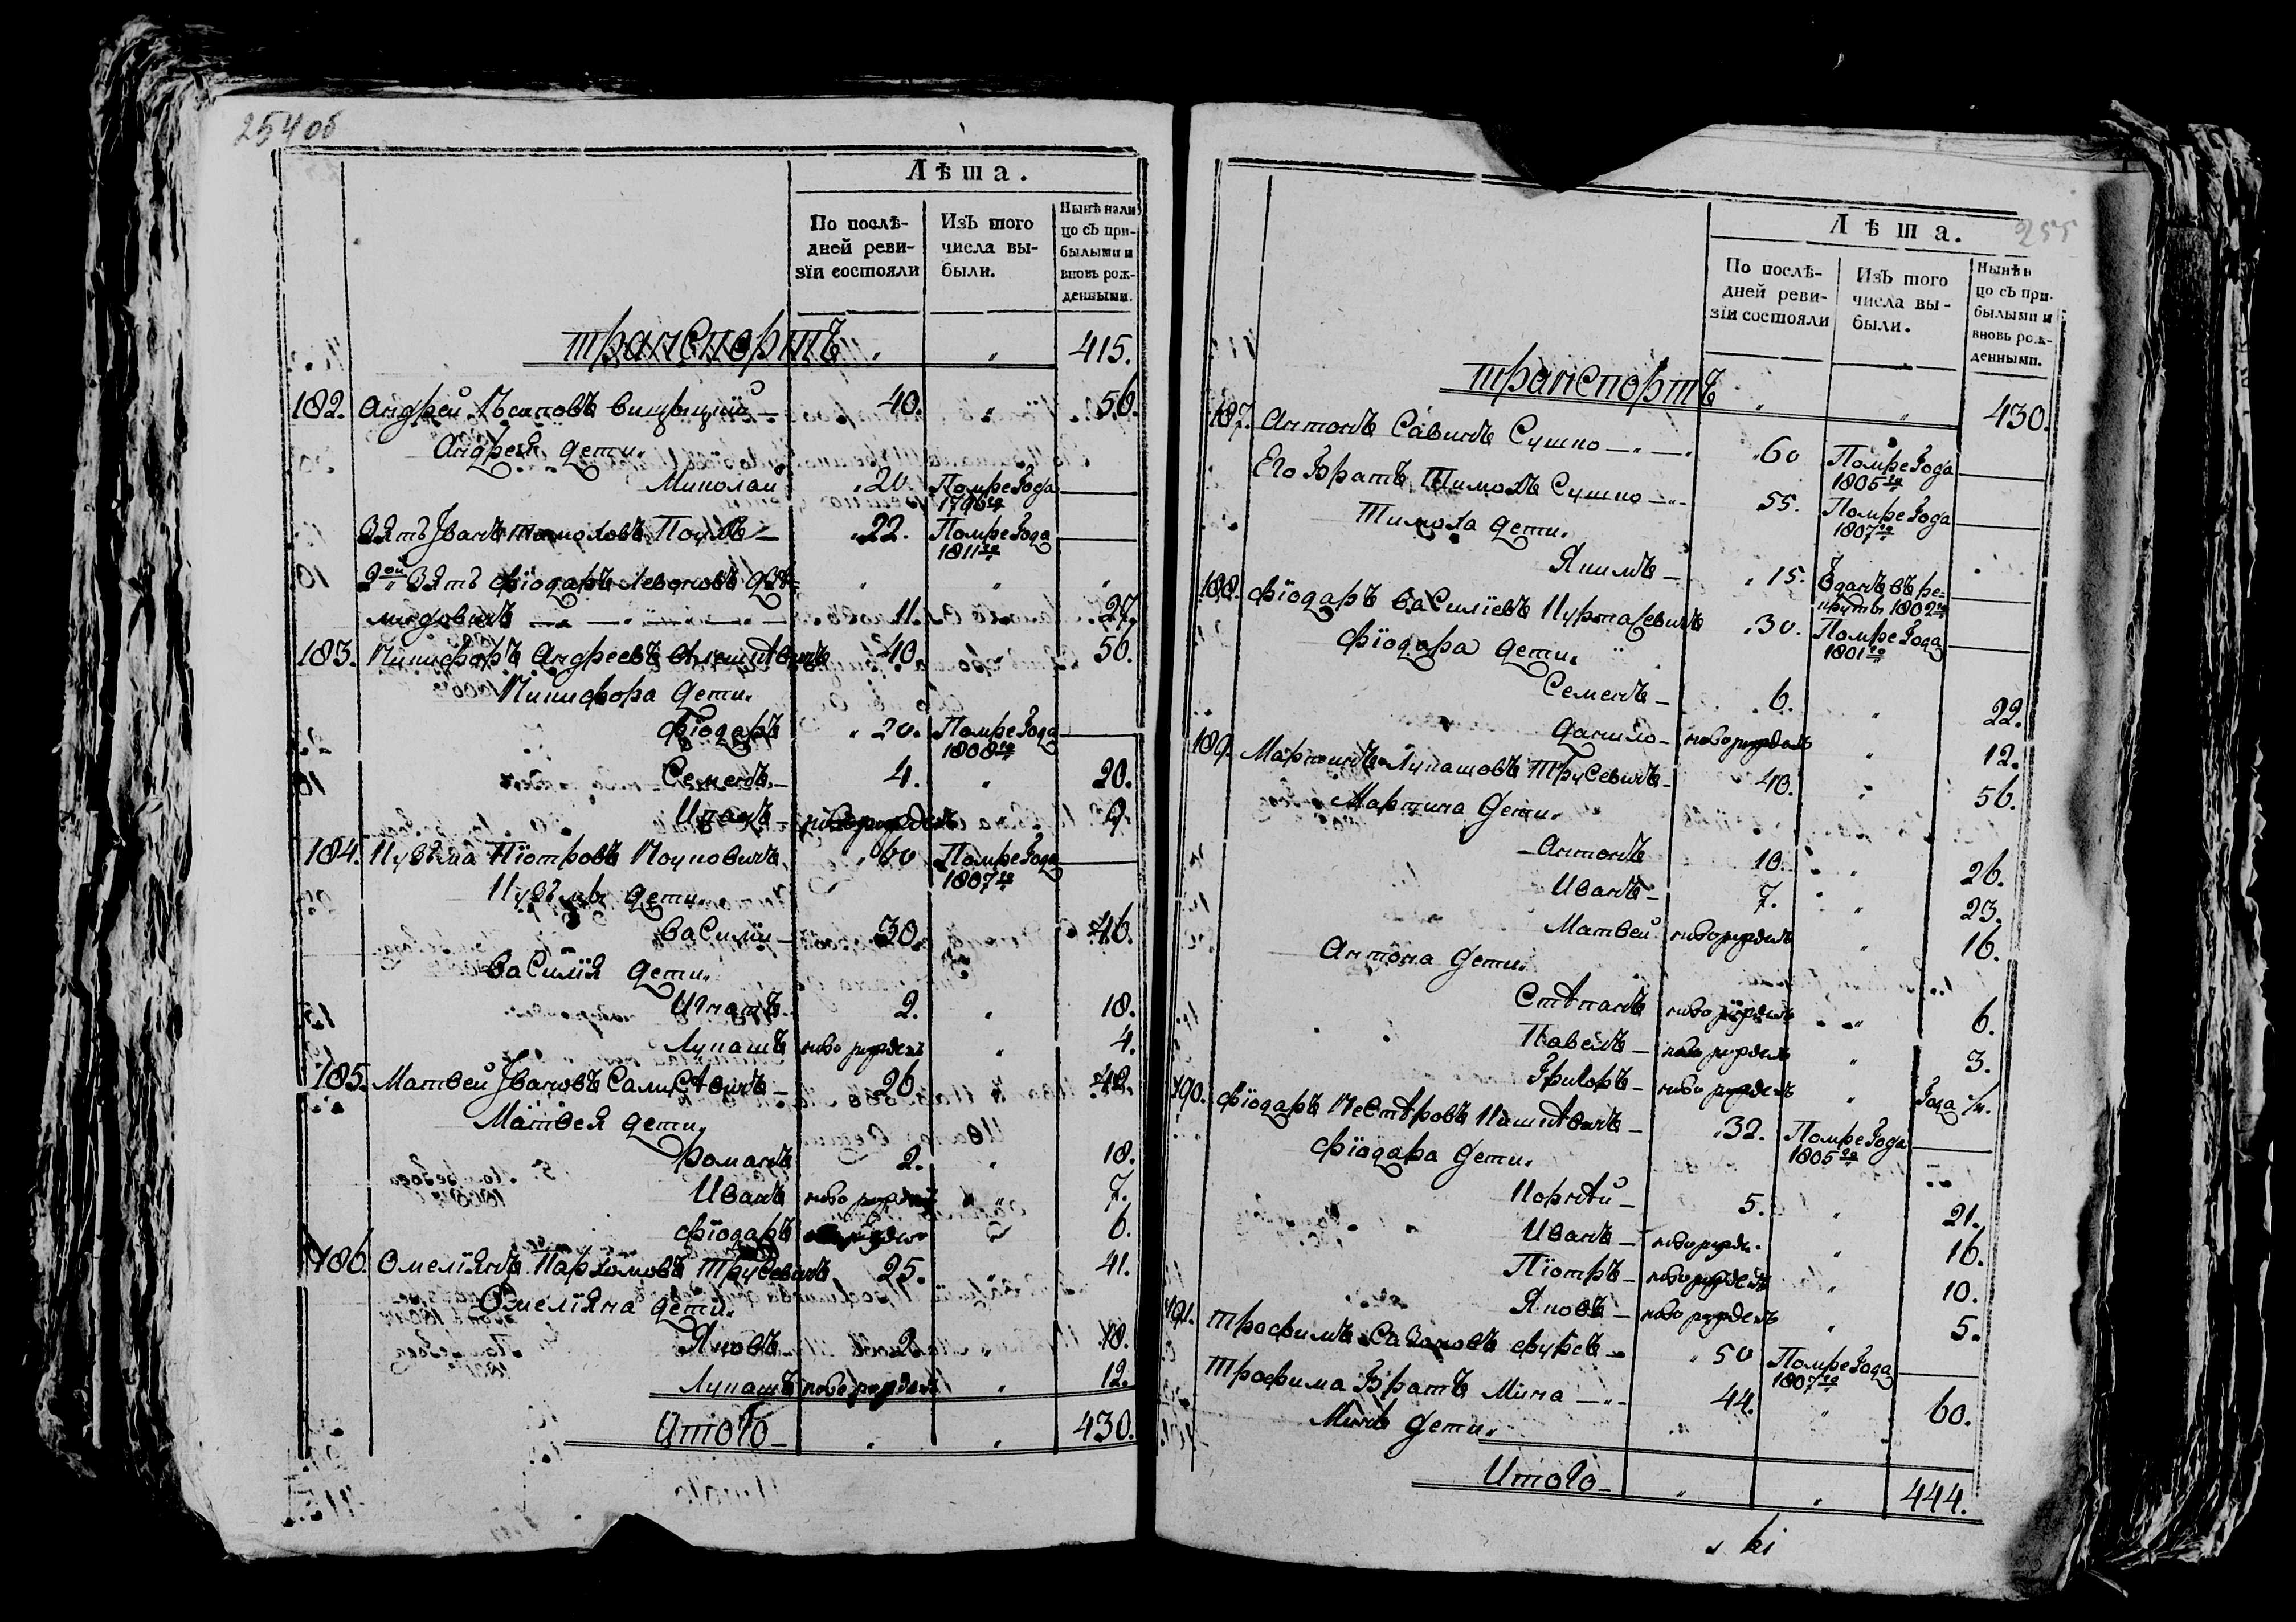 254 об
Лѣта.
По послѣ-
дней реви-
зїи состояли
Изъ того
числа вы-
были.
Нынѣ нали
цо съ при-
былыми и
вновь рож-
денными.
транспортъ " " 415.
182. Андрей Есиповъ 40. " 56.
Андрея дети.
Миколай 20. Помре Года
1796го
Зять Іванъ 22. Помре Года
1811го
2ой Зять Фїодаръ Левоновъ
11. 27.
183. Никифоръ Андреевъ 40. " 56.
Никифора дети.
Фїодаръ 20. Помре Года
1808го
Семенъ 4. " 20.
Исакъ новорожденъ 9.
184. Кузьма Піотровъ 60 Помре Года
1807го
Кузьмы дети.
Василїй 30. 46.
Василїя дети.
Игнатъ 2. " 18.
Лукашъ ново рожденъ " 4.
185. Матвей Івановъ 26 42.
Матвея дети.
Романъ 2. " 18.
Иванъ ново рожденъ " 7.
Фїодаръ 6.
186. Омеліянъ Пархомовъ Трусевичъ 25. 41.
Омеліяна дети.
Яковъ 2. " 18.
Лукашъ ново рожденъ " 12.
Итого " " 430.
255
Лѣта.
По послѣ-
дней реви-
зїи состояли
Изъ того
числа вы-
были.
Нынѣ н
цо съ при-
былыми и
вновь рож-
денными.
транспортъ " " 430.
187. Антонъ Савинъ Сушко 60 Помре Года
1805го
Его Братъ Тимохъ Сушко 55. Помре Года
1807го
Тимоха дети.
Якимъ 15. Зданъ въ ре-
круты 1802го
188. Фїодаръ Василїевъ Курта­севичъ 30. Помре Года
1801го
Фїодара дети.
Семенъ 6. " 22.
Данило новорожденъ " 12.
189. Мартинъ Лукашовъ Трусевичъ 40. " 56.
Мартина дети.
Антонъ 10. " 26.
Иванъ 7. " 23.
Матвей новорожденъ " 16.
Антона дети.
Стѣпанъ ново рожденъ " 6.
Павелъ ново рожденъ " 3.
Григоръ ново рожденъ " Года
190. Фїодаръ Нестеровъ 32. Помре Года
1805го
Фїодара дети.
Корнѣй 5. " 21.
Иванъ новорожде. " 16.
Піотръ новорожденъ " 10.
Яковъ ново рожденъ " 5.
191. Трофимъ 50 Помре Года
1807го
Трофима Братъ Мина 44. " 60.
Мины дети.
Итого " " 444.